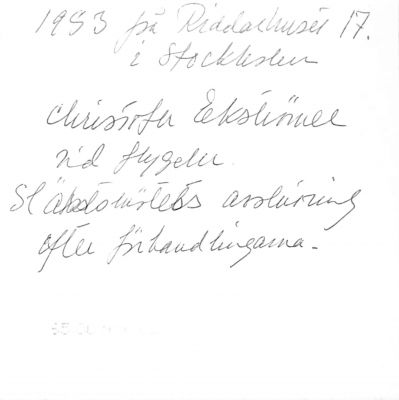 1953 på Riddarhuset 17.
i Stockholm
Christofer Ekströmer
vid flygeln.
Släktmötets avslutning
efter förhandlingarna.